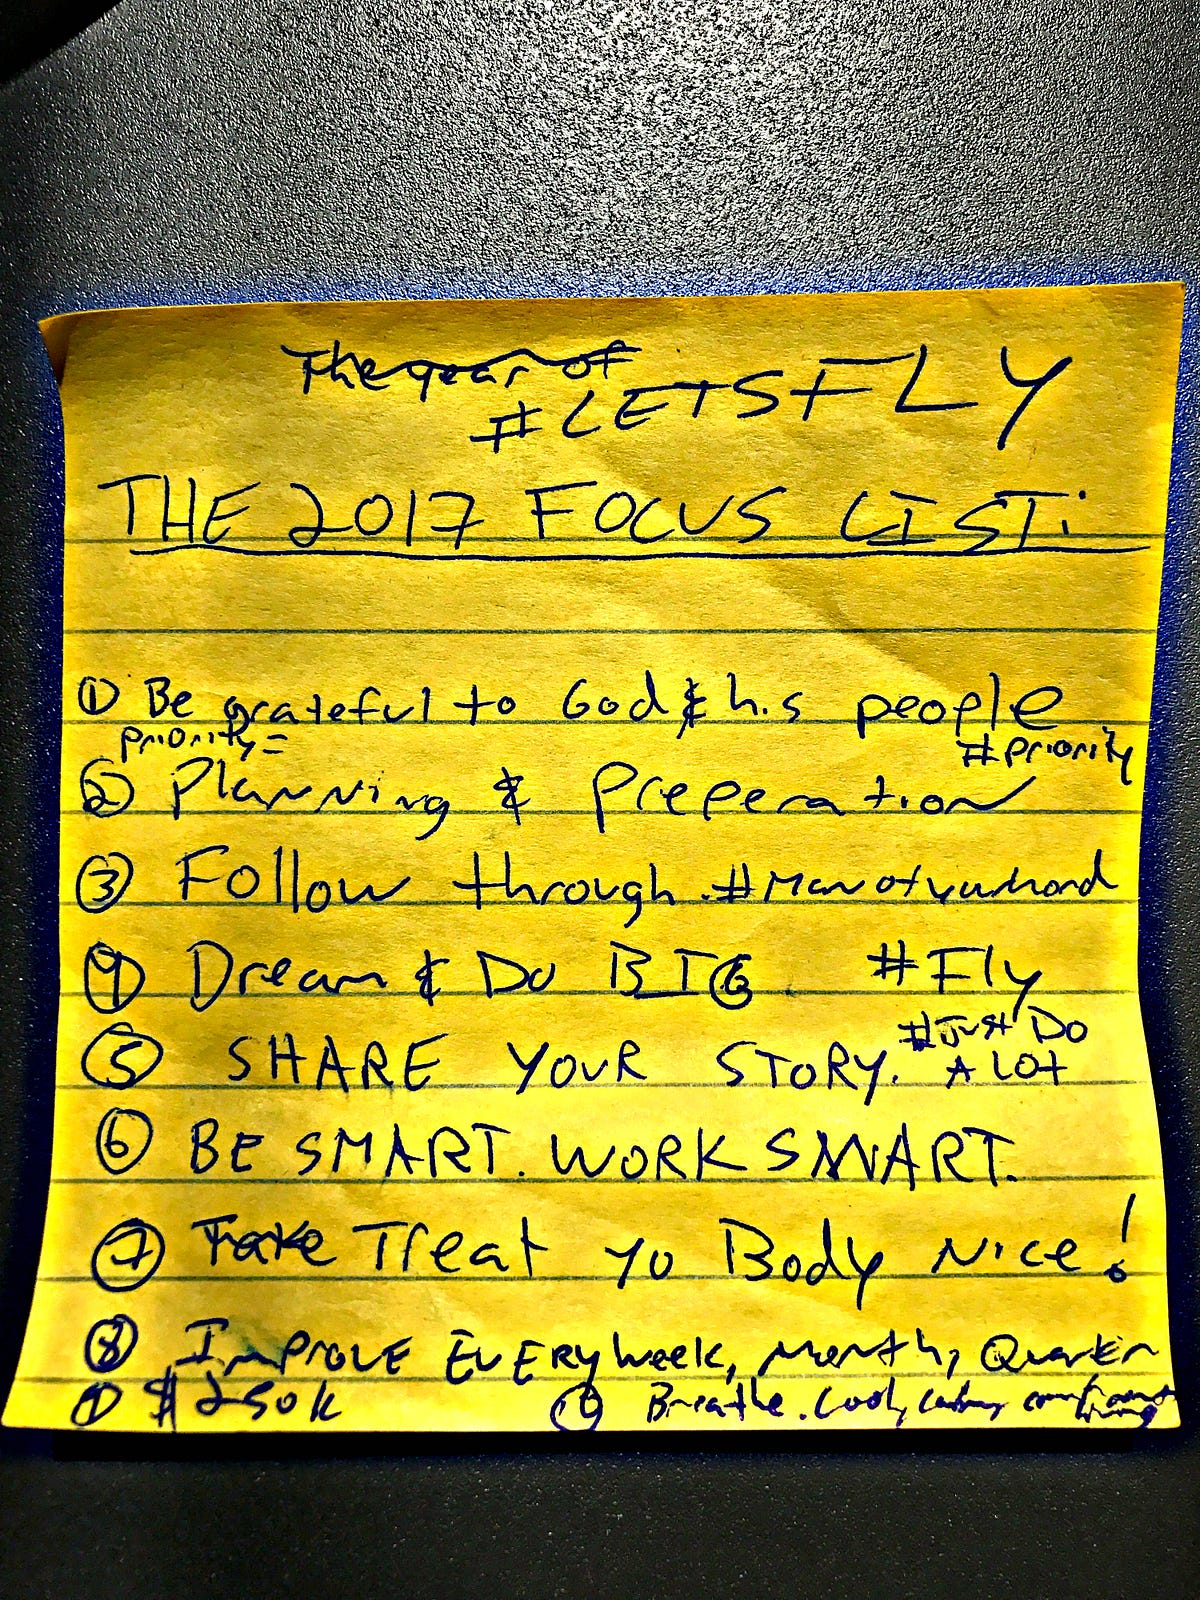 The year of
#LETSFLY
THE 2017 FOCUS LIST:
① Be grateful to God & his people
priority= #priority
② Planning & Preperation
③ Follow through. #Manofyourhand
④ Dream & Do BIG. #Fly
#Just Do
⑤ SHARE YOUR STORY. A LOT
⑥ BE SMART. WORK SMART.
⑦ Take Treat yo Body Nice!
⑧ Improve EVERY week, Month, Quarter
⑨ $250k ⑩ Breathe. Cool, calm, confident
living